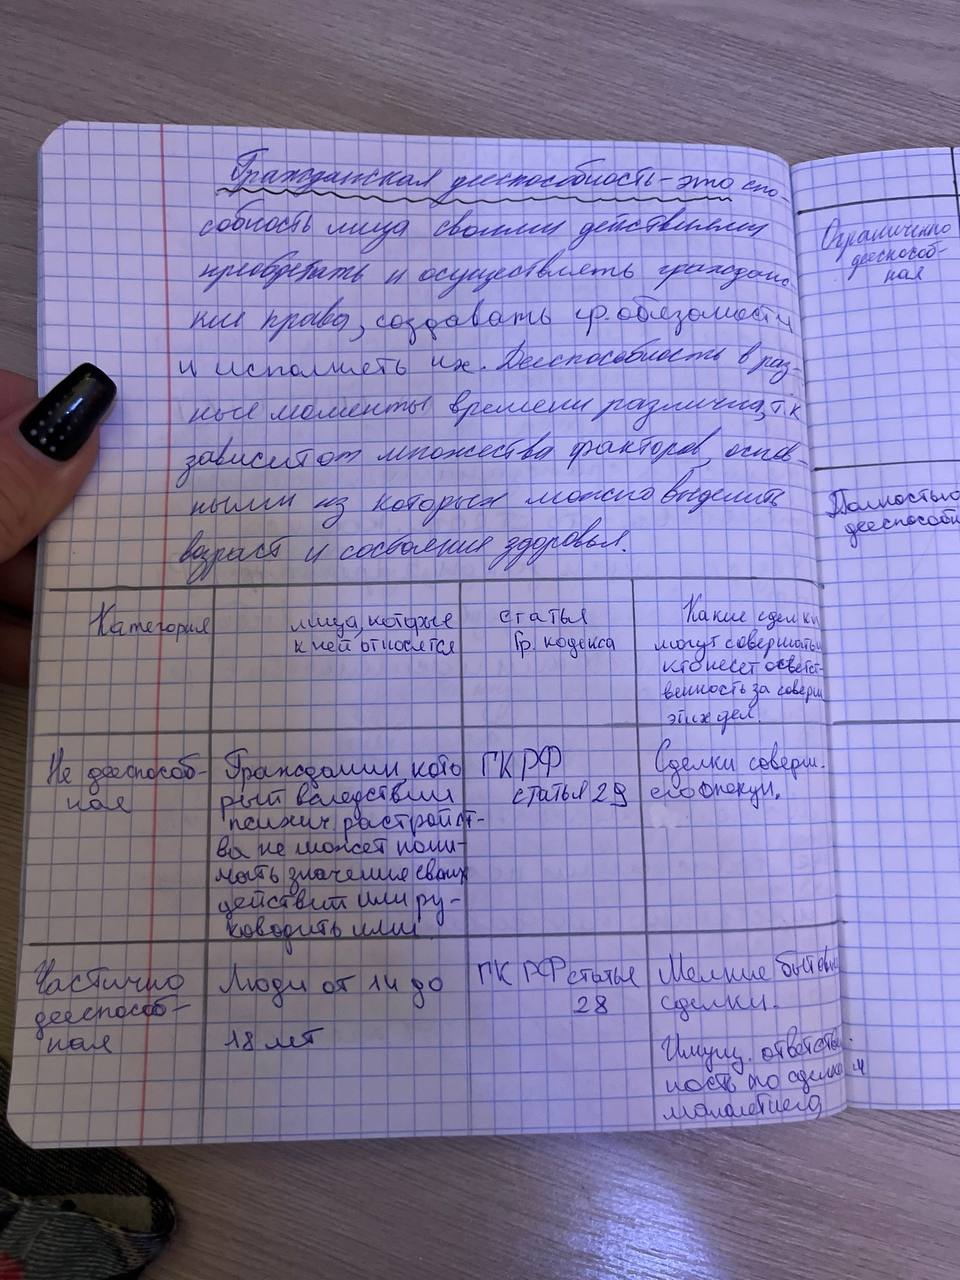 Гражданская дееспособность - это спо-
собность лица своими действиями
приобретать и осуществлять граждан
ские права, создавать гр. обязанности
и исполнять их. Дееспособность в раз-
ные моменты времени различна, т.к
зависит от множества факторов, основ-
ными из которых можно выделить
возраст и состояние здоровья.
Категория
лица, которые
к ней относятся
статья
Гр. кодекса
Какие сделки
могут совершать и
кто несет ответст-
венность за соверш
этих дел.
Не дееспособ-
ная
Гражданин, кото
рый вследствии
психич. растройст-
ва не может пони-
мать значение своих
действий или ру-
ководить ими
ГК РФ
статья 29
Сделки соверш.
его опекун.
Частично
дееспособ-
ная
Люди от 14 до
18 лет
ГК РФ статья
28
Мелкие бытовые
сделки.
Имущ. ответствен-
ность по сделкам
малолетнего
Ограниченно
дееспособ-
ная
Полностью
дееспособн